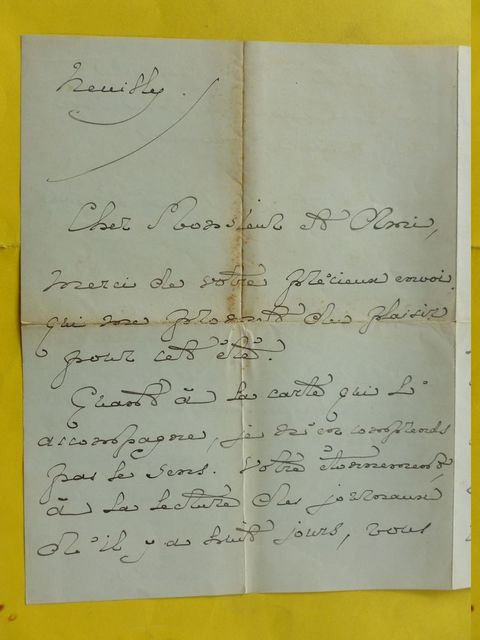 Neuilly.
Cher Monsieur et Ami,
Merci de votre précieux envoi
qui me promet du plaisir
pour cet été.
Quant à la carte qui l'
accompagne, je n'en comprends
pas le sens. Votre étonnement,
à la lecture des journaux
d'il y a huit jours, vous